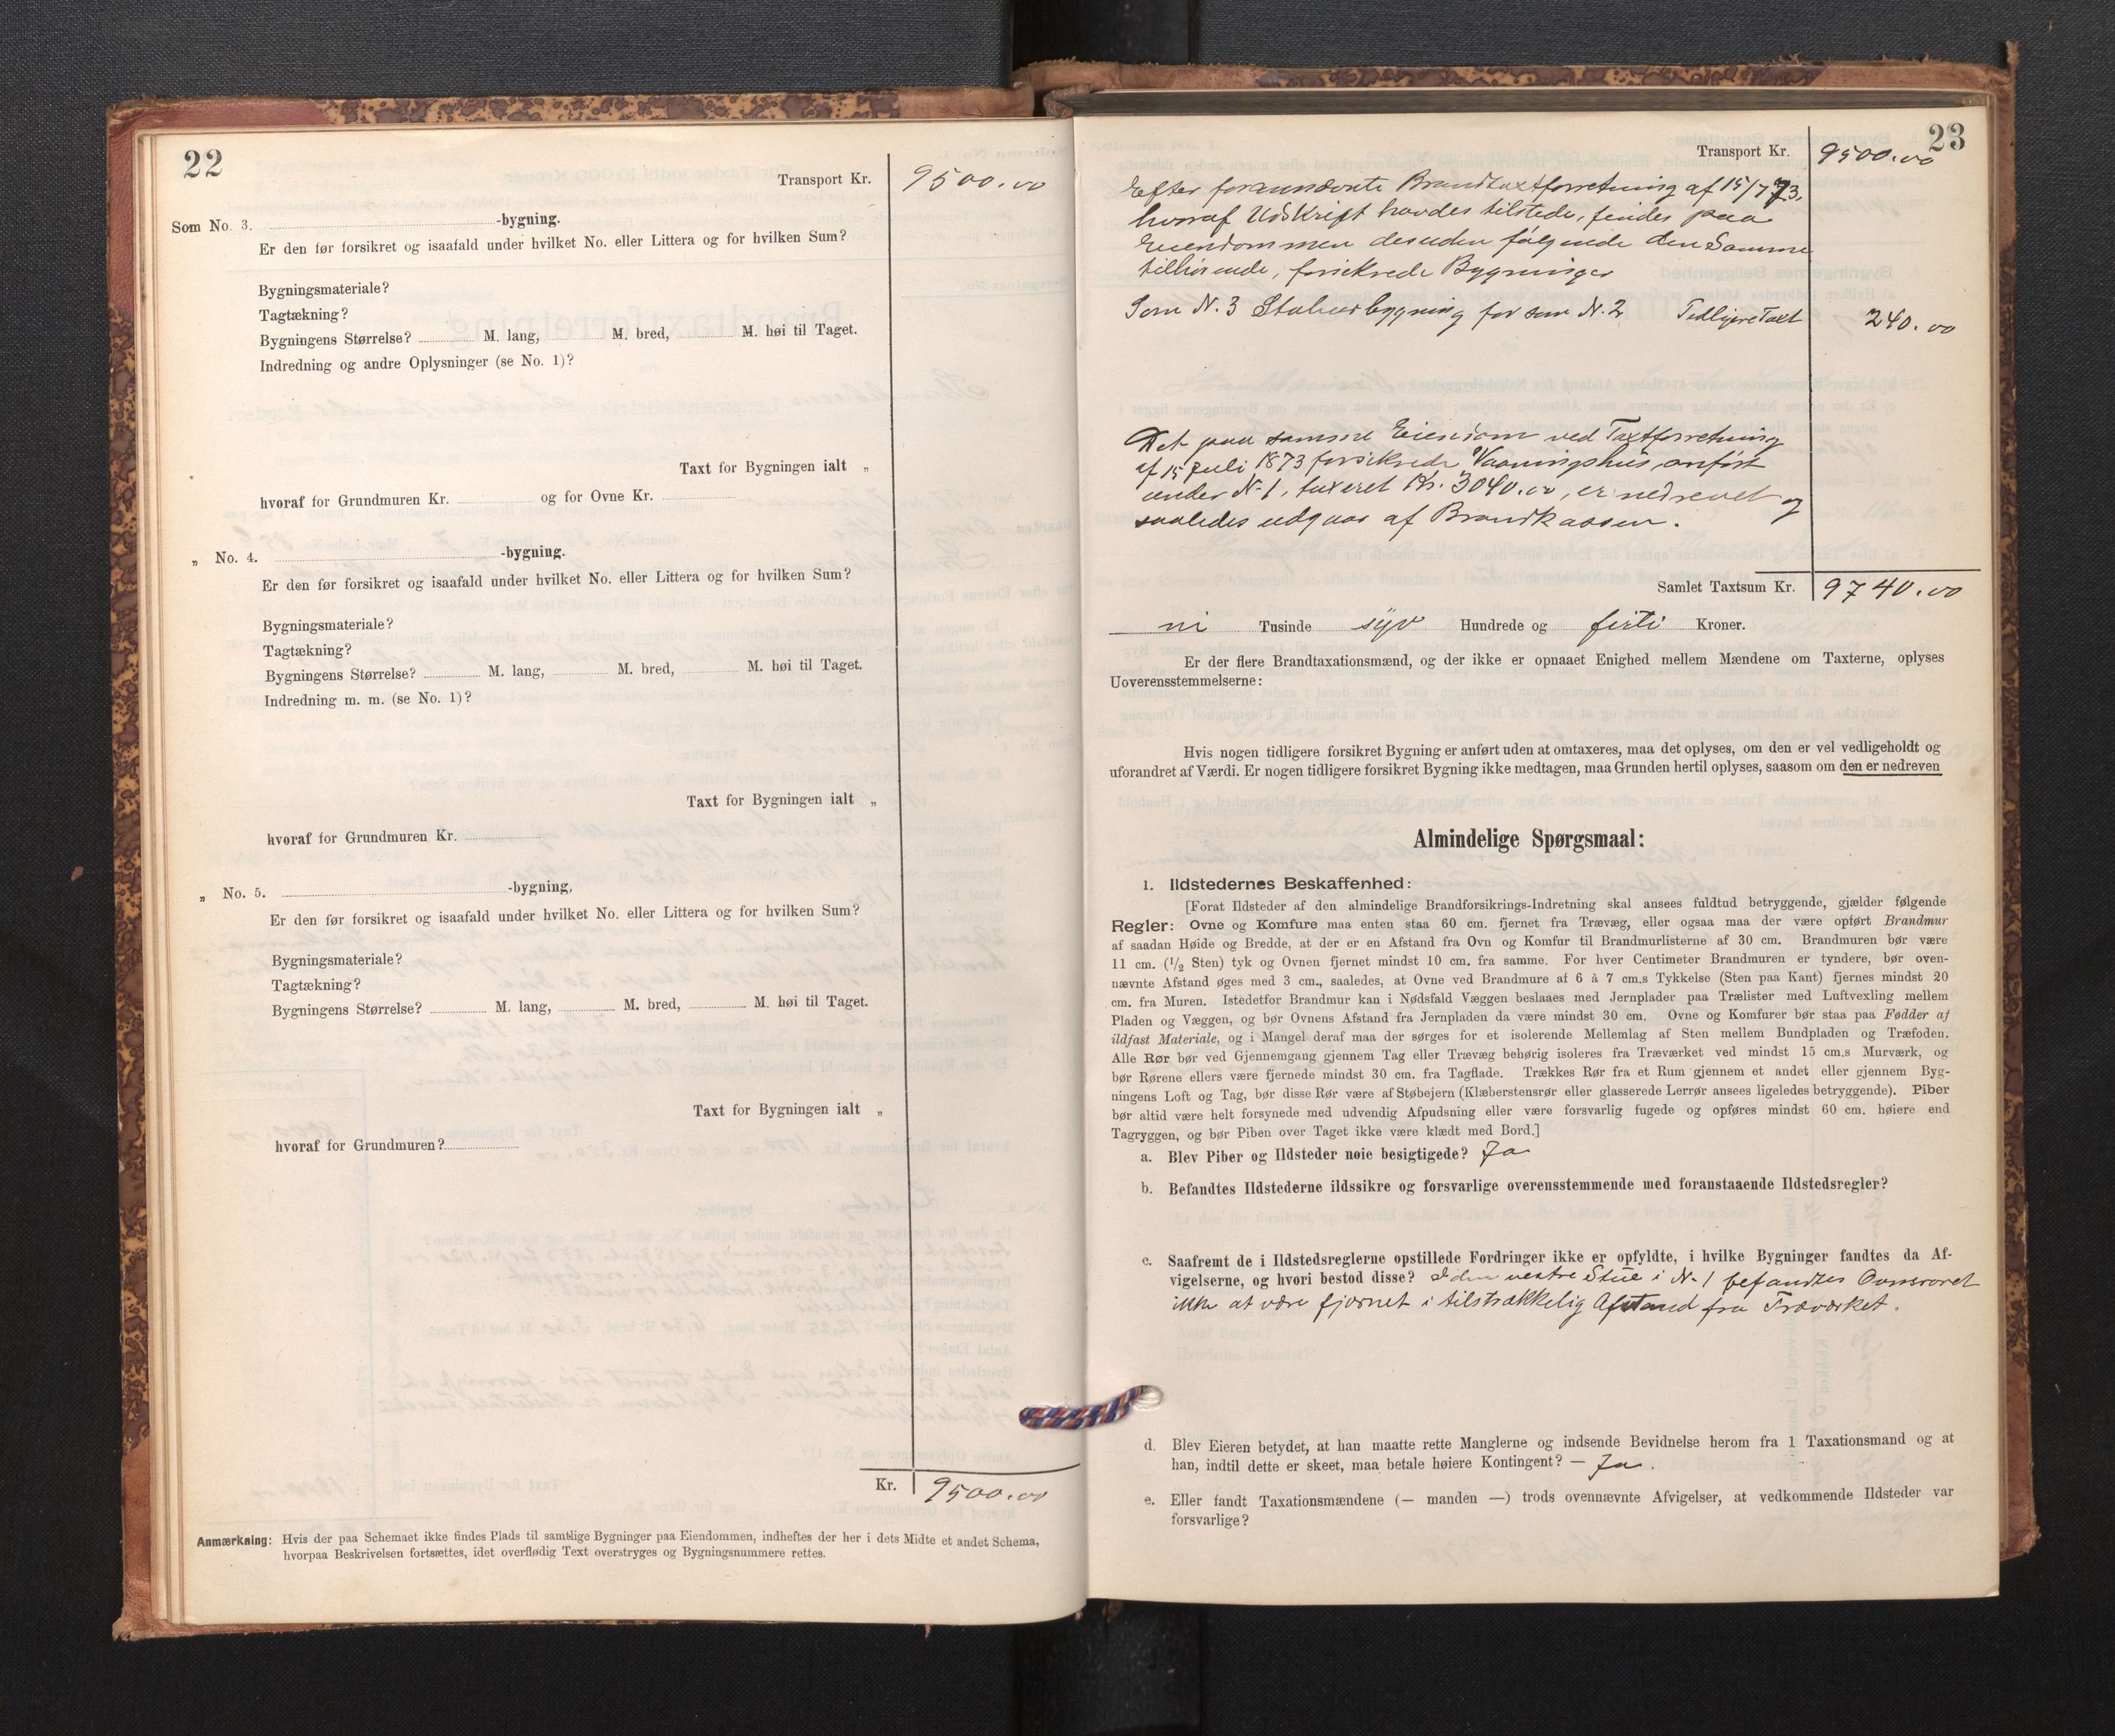 22
Transport Kr. 9500.00
Som No. 3. -bygning.
Er den før forsikret og isaafald under hvilket No. eller Littera og for hvilken Sum?
Bygningsmateriale?
Tagtækning?
Bygningens Størrelse? M. lang, M. bred, M. høi til Taget.
Indredning og andre Oplysninger (se No. 1)?
Taxt for Bygningen ialt „
hvoraf for Grundmuren Kr. og for Ovne Kr.
„ No. 4. -bygning.
Er den før forsikret og isaafald under hvilket No. eller Littera og for hvilken Sum?
Bygningsmateriale?
Tagtækning?
Bygningens Størrelse? M. lang, M. bred, M. høi til Taget.
Indredning m. m. (se No. 1)?
Taxt for Bygningen ialt „
hvoraf for Grundmuren Kr.
„ No. 5. -bygning,
Er den før forsikret og isaafald under hvilket No. eller Littera og for hvilken Sum?
Bygningsmateriale?
Tagtækning?
Bygningens Størrelse? M. lang, M. bred, M. høi til Taget.
Taxt for Bygningen ialt „
hvoraf for Grundmuren?
Kr. 9500.00
Anmærkning: Hvis der paa Schemaet ikke findes Plads til samtlige Bygninger paa Eiendommen, indheftes der her i dets Midte et andet Schema,
hvorpaa Beskrivelsen fortsættes, idet overflødig Text overstryges og Bygningsnummere rettes.
23
Transport Kr. 9500.00
Efter forannævnte Brandtaxtforretning af 15/7 73,
hvoraf Udskrift havdes tilstede, findes paa
Eiendommen desuden følgende den Samme
tilhørende, forsikrede Bygninger
Som N. 3 Staburbygning før som N. 2 Tidligere Taxt 240.00
Det paa samme Eiendom ved Taxtforretning
af 15 Juli 1873 forsikrede Vaaningshus, anført
under N. 1, taxeret Kr. 3040.00, er nedrevet og
saaledes udgaar af Brandkassen.
Samlet Taxtsum Kr. 9740.00
ni Tusinde syv Hundrede og firti Kroner.
Er der flere Brandtaxationsmænd, og der ikke er opnaaet Enighed mellem Mændene om Taxterne, oplyses
Uoverensstemmelserne:
Hvis nogen tidligere forsikret Bygning er anført uden at omtaxeres, maa det oplyses, om den er vel vedligeholdt og
uforandret af Værdi. Er nogen tidligere forsikret Bygning ikke medtagen, maa Grunden hertil oplyses, saasom om den er nedreven
Almindelige Spørgsmaal:
1. Ildstedernes Beskaffenhed:
[Forat Ildsteder af den almindelige Brandforsikrings-Indretning skal ansees fuldtud betryggende, gjælder følgende
Regler: Ovne og Komfure maa enten staa 60 cm. fjernet fra Trævæg, eller ogsaa maa der være opført Brandmur
af saadan Høide og Bredde, at der er en Afstand fra Ovn og Komfur til Brandmurlisterne af 30 cm. Brandmuren bør være
11 cm. (1/2 Sten) tyk og Ovnen fjernet mindst 10 cm. fra samme. For hver Centimeter Brandmuren er tyndere, bør oven-
nævnte Afstand øges med 3 cm., saaledes, at Ovne ved Brandmure af 6 à 7 cm.s Tykkelse (Sten paa Kant) fjernes mindst 20
cm. fra Muren. Istedetfor Brandmur kan i Nødsfald Væggen beslaaes med Jernplader paa Trælister med Luftvexling mellem
Pladen og Væggen, og bør Ovnens Afstand fra Jernpladen da være mindst 30 cm. Ovne og Komfurer bør staa paa Fødder af
ildfast Materiale, og i Mangel deraf maa der sørges for et isolerende Mellemlag af Sten mellem Bundpladen og Træfoden.
Alle Rør bør ved Gjennemgang gjennem Tag eller Trævæg behørig isoleres fra Træværket ved mindst 15 cm.s Murværk, og
bør Rørene ellers være fjernede mindst 30 cm. fra Tagflade. Trækkes Rør fra et Rum gjennem et andet eller gjennem Byg-
ningens Loft og Tag, bør disse Rør være af Støbejern (Klæberstensrør eller glasserede Lerrør ansees ligeledes betryggende). Piber
bør altid være helt forsynede med udvendig Afpudsning eller være forsvarlig fugede og opføres mindst 60 cm. høiere end
Tagryggen, og bør Piben over Taget ikke være klædt med Bord.]
a. Blev Piber og Ildsteder nøie besigtigede? Ja
b. Befandtes Ildstederne ildssikre og forsvarlige overensstemmende med foranstaaende Ildstedsregler?
c. Saafremt de i Ildstedsreglerne opstillede Fordringer ikke er opfyldte, i hvilke Bygninger fandtes da Af-
vigelserne, og hvori bestod disse? I den vestre Stue i N. 1 befandtes Ovnsrøret
ikke at være fjernet i tilstrækkelig Afstand fra Træværket.
d. Blev Eieren betydet, at han maatte rette Manglerne og indsende Bevidnelse herom fra 1 Taxationsmand og at
han, indtil dette er skeet, maa betale høiere Kontingent? — Ja.
e. Eller fandt Taxationsmændene (— manden —) trods ovennævnte Afvigelser, at vedkommende Ildsteder var
forsvarlige?